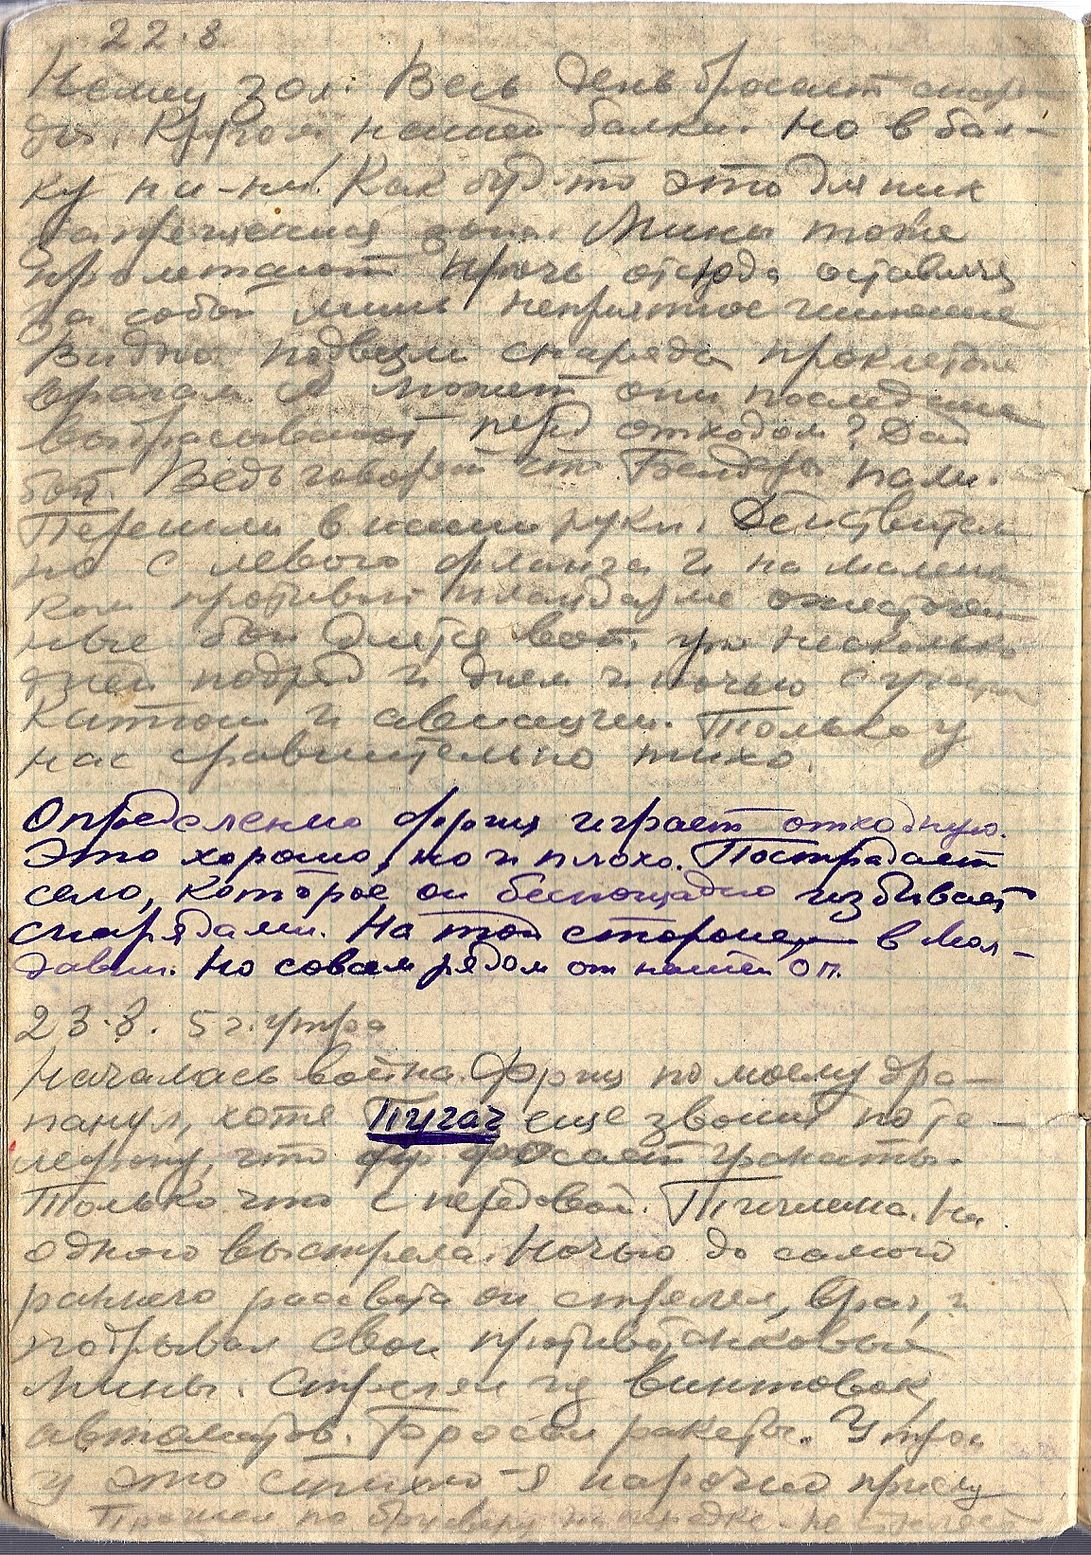 22.8
Немец зол. Весь день бросает снаря-
ды. Кругом нашей балки. Но в бал-
ку ни-ни! Как будто это для них
запрещенная зона. Мины тоже
пролетают прочь отсюда оставляя
за собой лишь неприятное шипение
Видно подвезли снаряды проклятые
врагам. А может они последние
выбрасывают перед отходом? Дай
бог. Ведь говорят что Бендеры пали.
Перешли в наши руки. Действитель
но с левого фланга и на малень
ком противоп плацдарме ожесточен-
ные бои длятся вот уже несколько
дней подряд и днем и ночью с участ
Катюш и авиации. Только у
нас сравнительно тихо.
Определенно фриц играет отходную.
Это хорошо, но и плохо. Пострадает
село, которое он беспощадно избивает
снарядами. На той стороне, в Мол-
давии. Но совсем рядом от нашей ОП.
23.8. 5 ч. утра
Началась война. Фриц по моему дра-
панул, хотя Пугач еще звонит по те-
лефону, что фр бросает гранаты.
Только что с передовой. Тишина. Ни
одного выстрела. Ночью до самого
раннего рассвета он стрелял, враг, и
подрывал свои противотанковые
мины. Стрелял из винтовок,
автоматов. Бросал ракеты. Утром
у это стихло - я нарочно прислу
Прошел по брустверу на передке - не стреляет